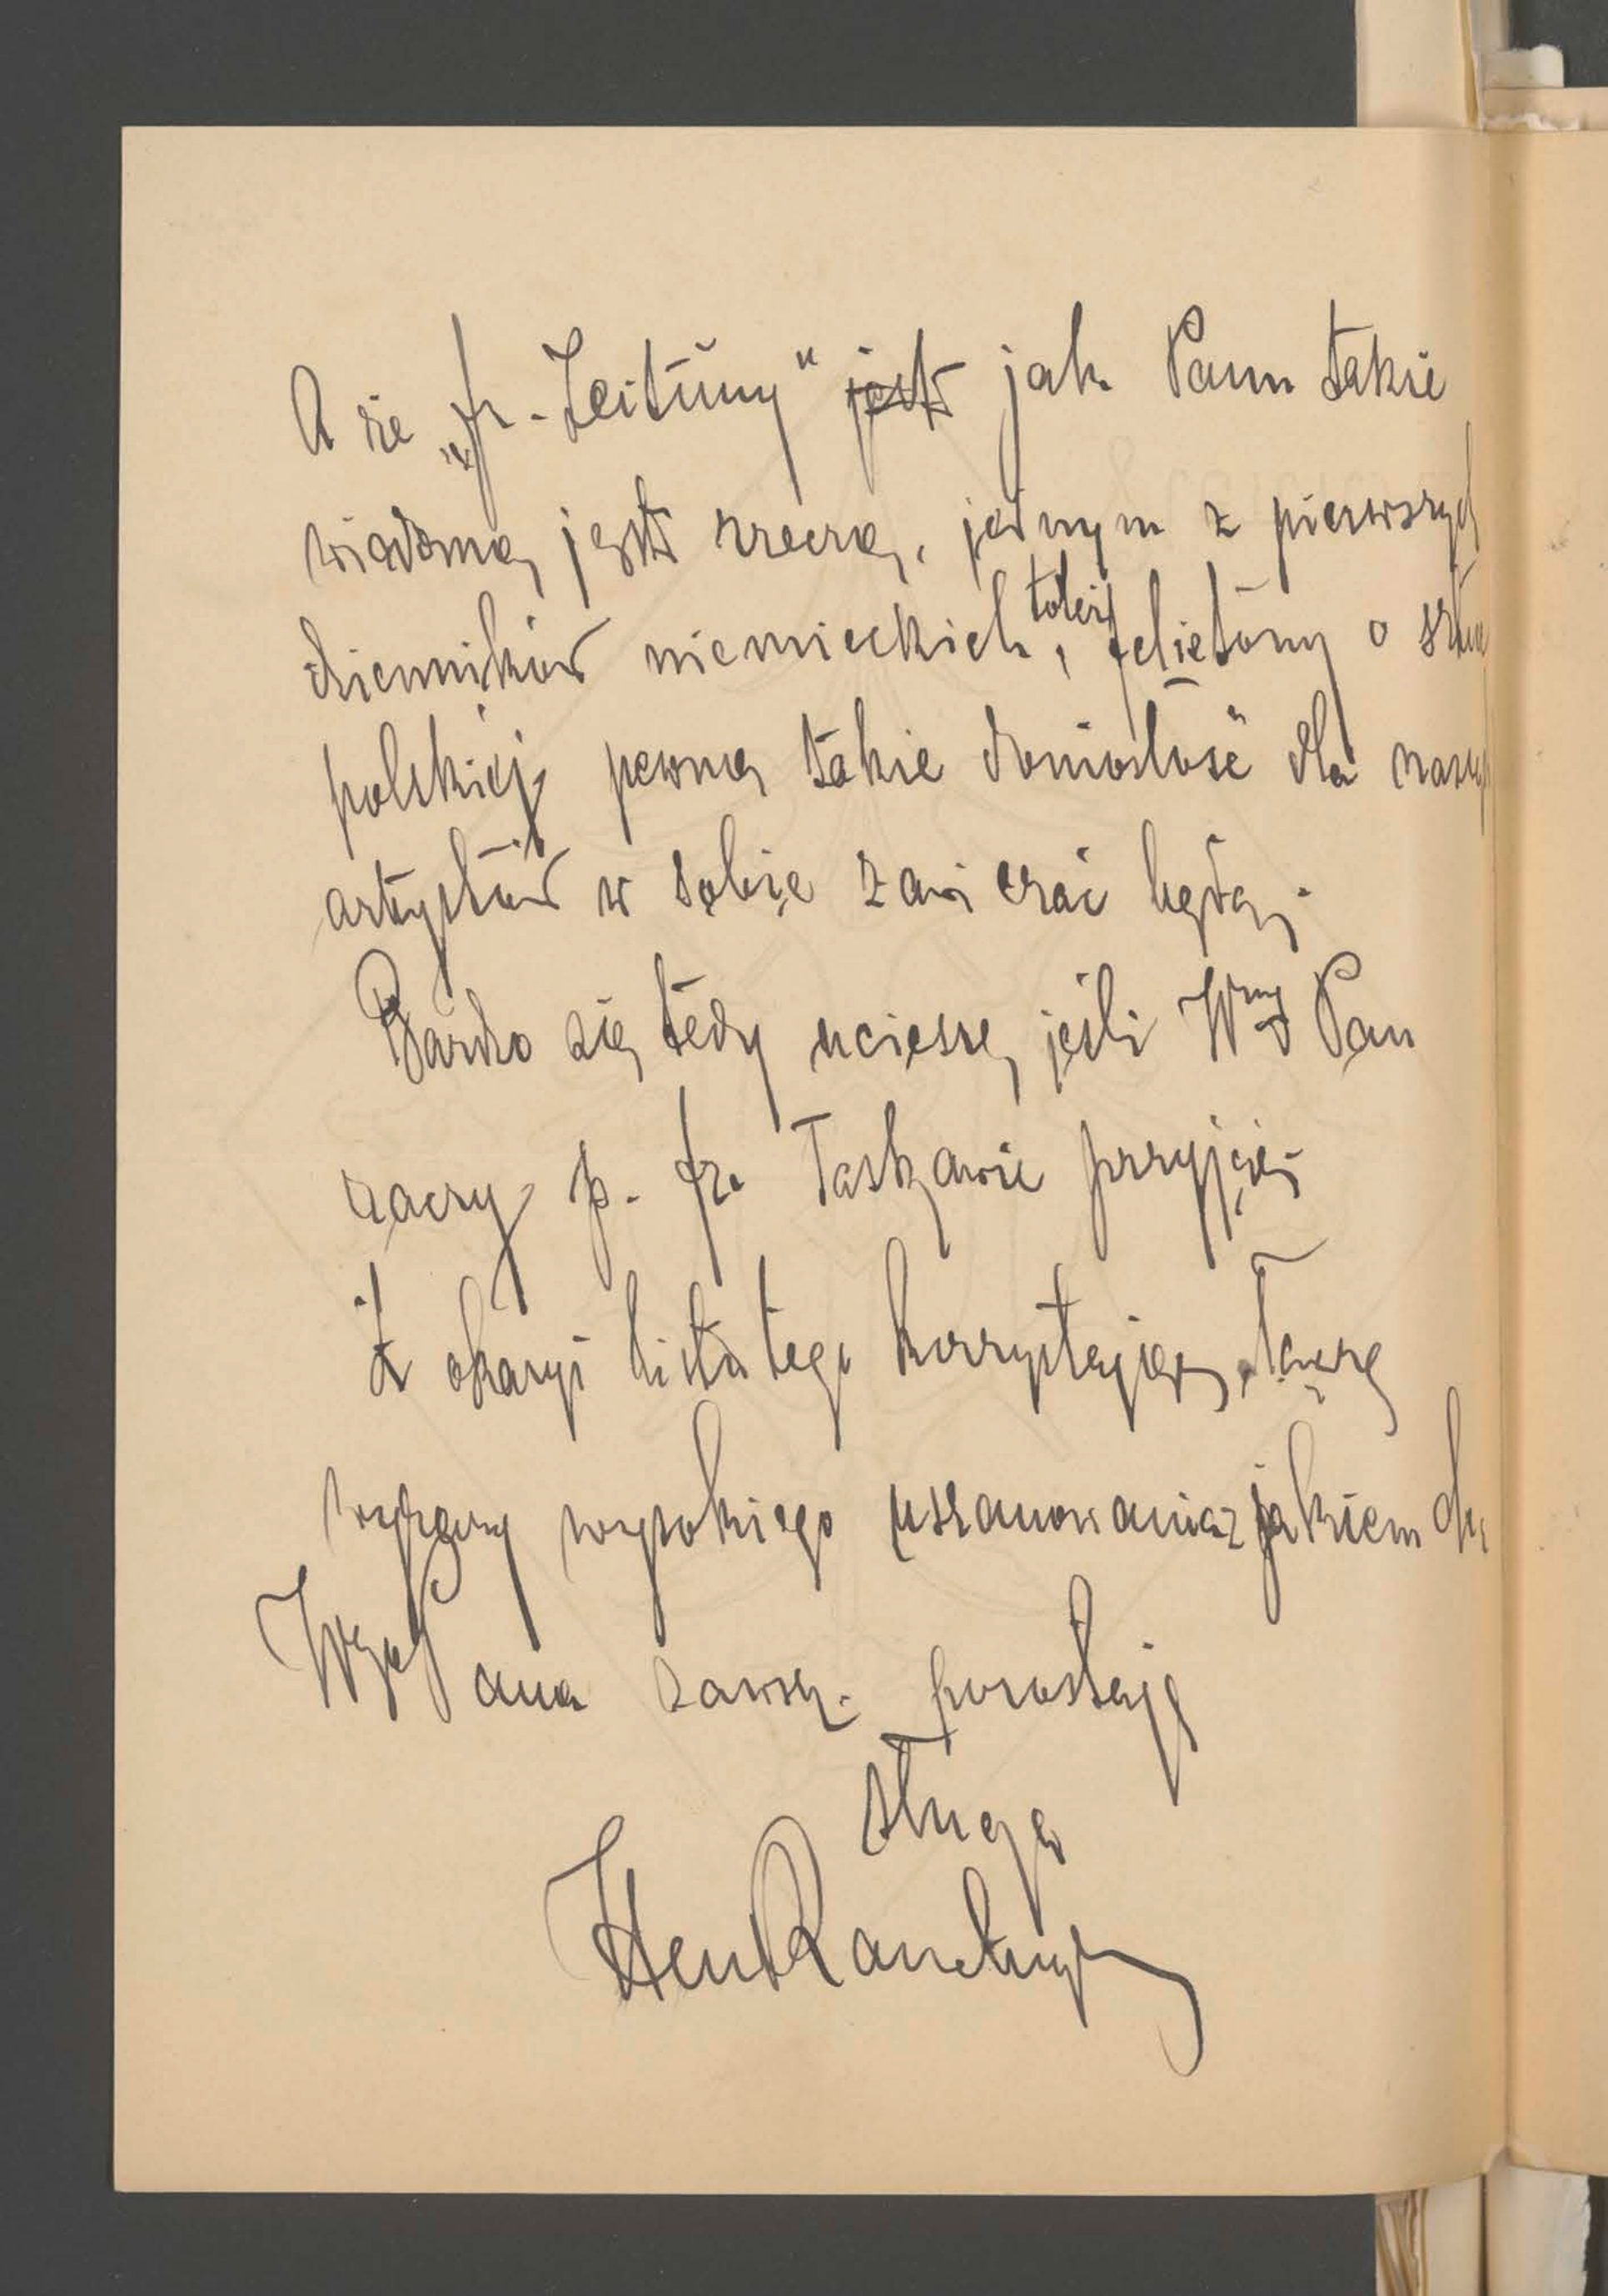 A że „Fr. Zeitung" jest jak Panu także
wiadomą jest rzeczą, jednym z pierwszych
dzienników niemieckich, toteż feljetony o sztuce
polskiej pewną także doniosłość dla naszych
artystów w sobie zawierać będą.
Bardzo się tedy ucieszę, jeśli Wny Pan
raczy p. Fr. łaskawie przyjąć.
Z okazyi listu tego korzystając, łączę
wyrazy wysokiego uszanowania z jakiem dla
WgoPana zawsze pozostaję
sługą
Hen